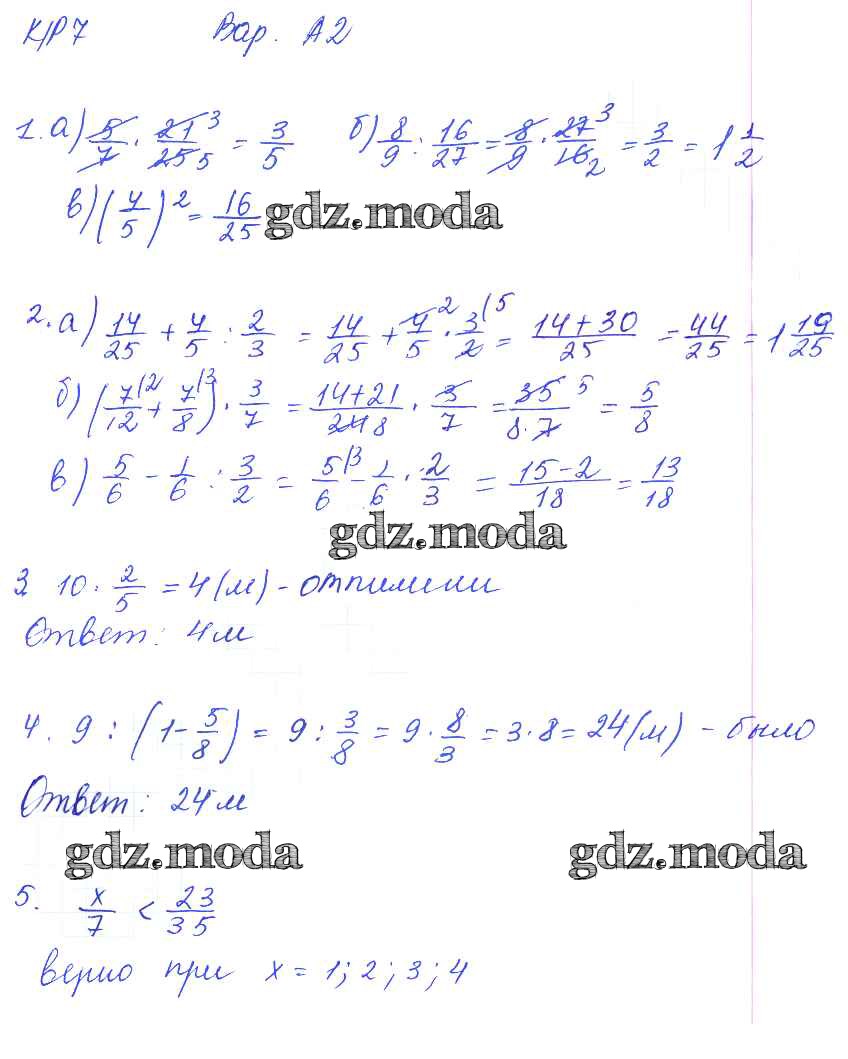 К/Р 7 Вар. А2
1. а) 5/7 · 21/25 = 3/5 б) 8/9 : 16/27 = 8/9 · 27/16 = 3/2 = 1 1/2
в) (4/5)² = 16/25
gdz.moda
2. а) 14/25 + 4/5 : 2/3 = 14/25 + 4/5 · 3/2 = 14+30/25 = 44/25 = 1 19/25
б) (7/12 + 7/8) · 3/7 = 14+21/24 · 3/7 = 35/8·7 = 5/8
в) 5/6 - 1/6 : 3/2 = 5/6 - 1/6 · 2/3 = 15-2/18 = 13/18
gdz.moda
3 10 · 2/5 = 4 (м) - отпилили
Ответ: 4 м
4. 9 : (1 - 5/8) = 9 : 3/8 = 9 · 8/3 = 3 · 8 = 24 (м) - было
Ответ: 24 м
gdz.moda gdz.moda
5. x/7 < 23/35
верно при x = 1; 2; 3; 4